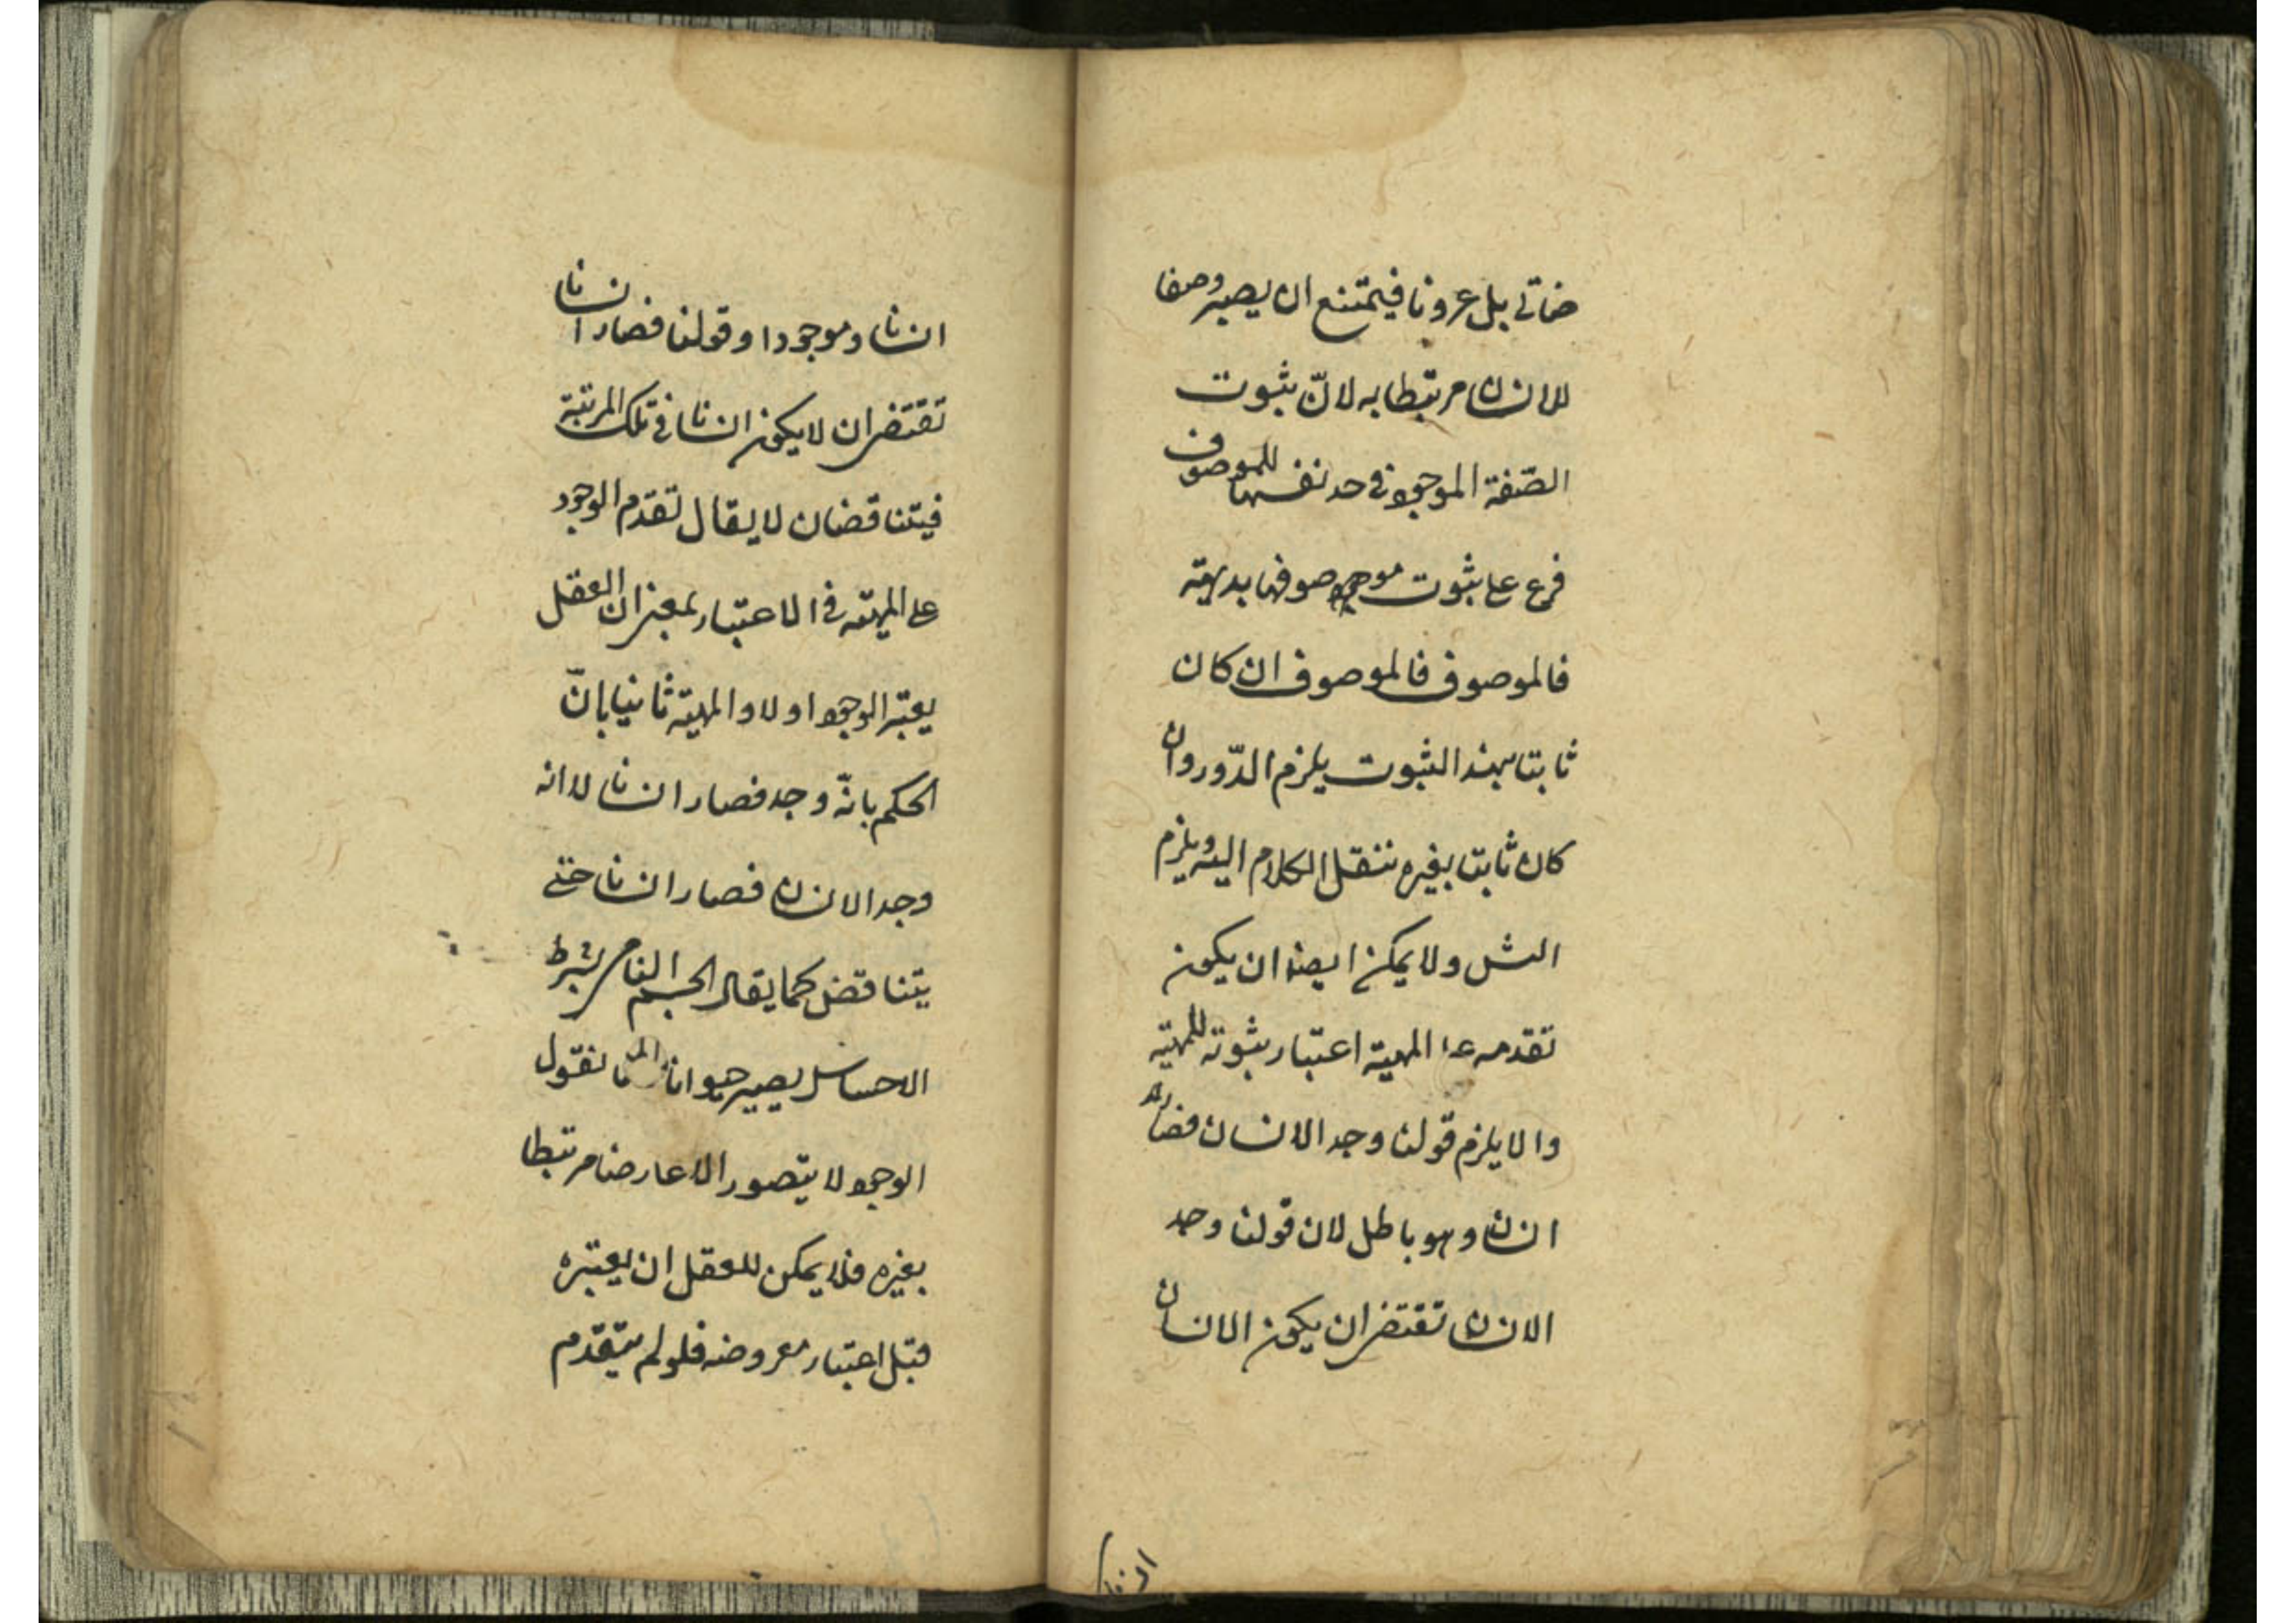 ضاتى بل عرونا فيمتنع ان يصير وصفا
للانسان مرتبطا به لانّ ثبوت
الصّفة الموجود فى حد نفسها للموصوف
فرع على ثبوت موصوفها بديهة
فالموصوف فالموصوف ان كان
ثابتا بهذا الثبوت يلزم الدّور وان
كان ثابتا بغيره ننقل الكلام اليه ويلزم
التسل ولا يمكن ايضا ان يكون
تقدمه على المهية اعتبار ثبوته للمهية
والا يلزم قولنا وجد الانسان فصار
انسانا وهو باطل لان قولنا وجد
الانسان تقتضى ان يكون الانسان
انسانا وموجودا وقولنا فصار انسانا
تقتضى ان لا يكون انسانا فى تلك المرتبة
فيتناقضان لا يقال تقدم الوجود
على المهية فى الاعتبار بمعنى ان العقل
يعتبر الوجود اولا والمهية ثانيا بانّ
الحكم بانّه وجد فصار انسانا لا انه
وجد الانسان فصار انسانا حتى
يتناقض كما يقال الجسم النامى بشرط
الاحساس يصير حيوانا نقول
الوجود لا يتصور الا عارضا مرتبطا
بغيره فلا يمكن للعقل ان يعتبره
قبل اعتبار معروضه فلو لم يتقدم